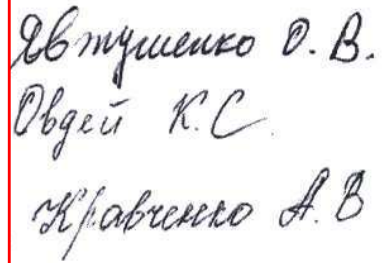 Явтушенко О. В.
Овдей К. С.
Кравченко А. В